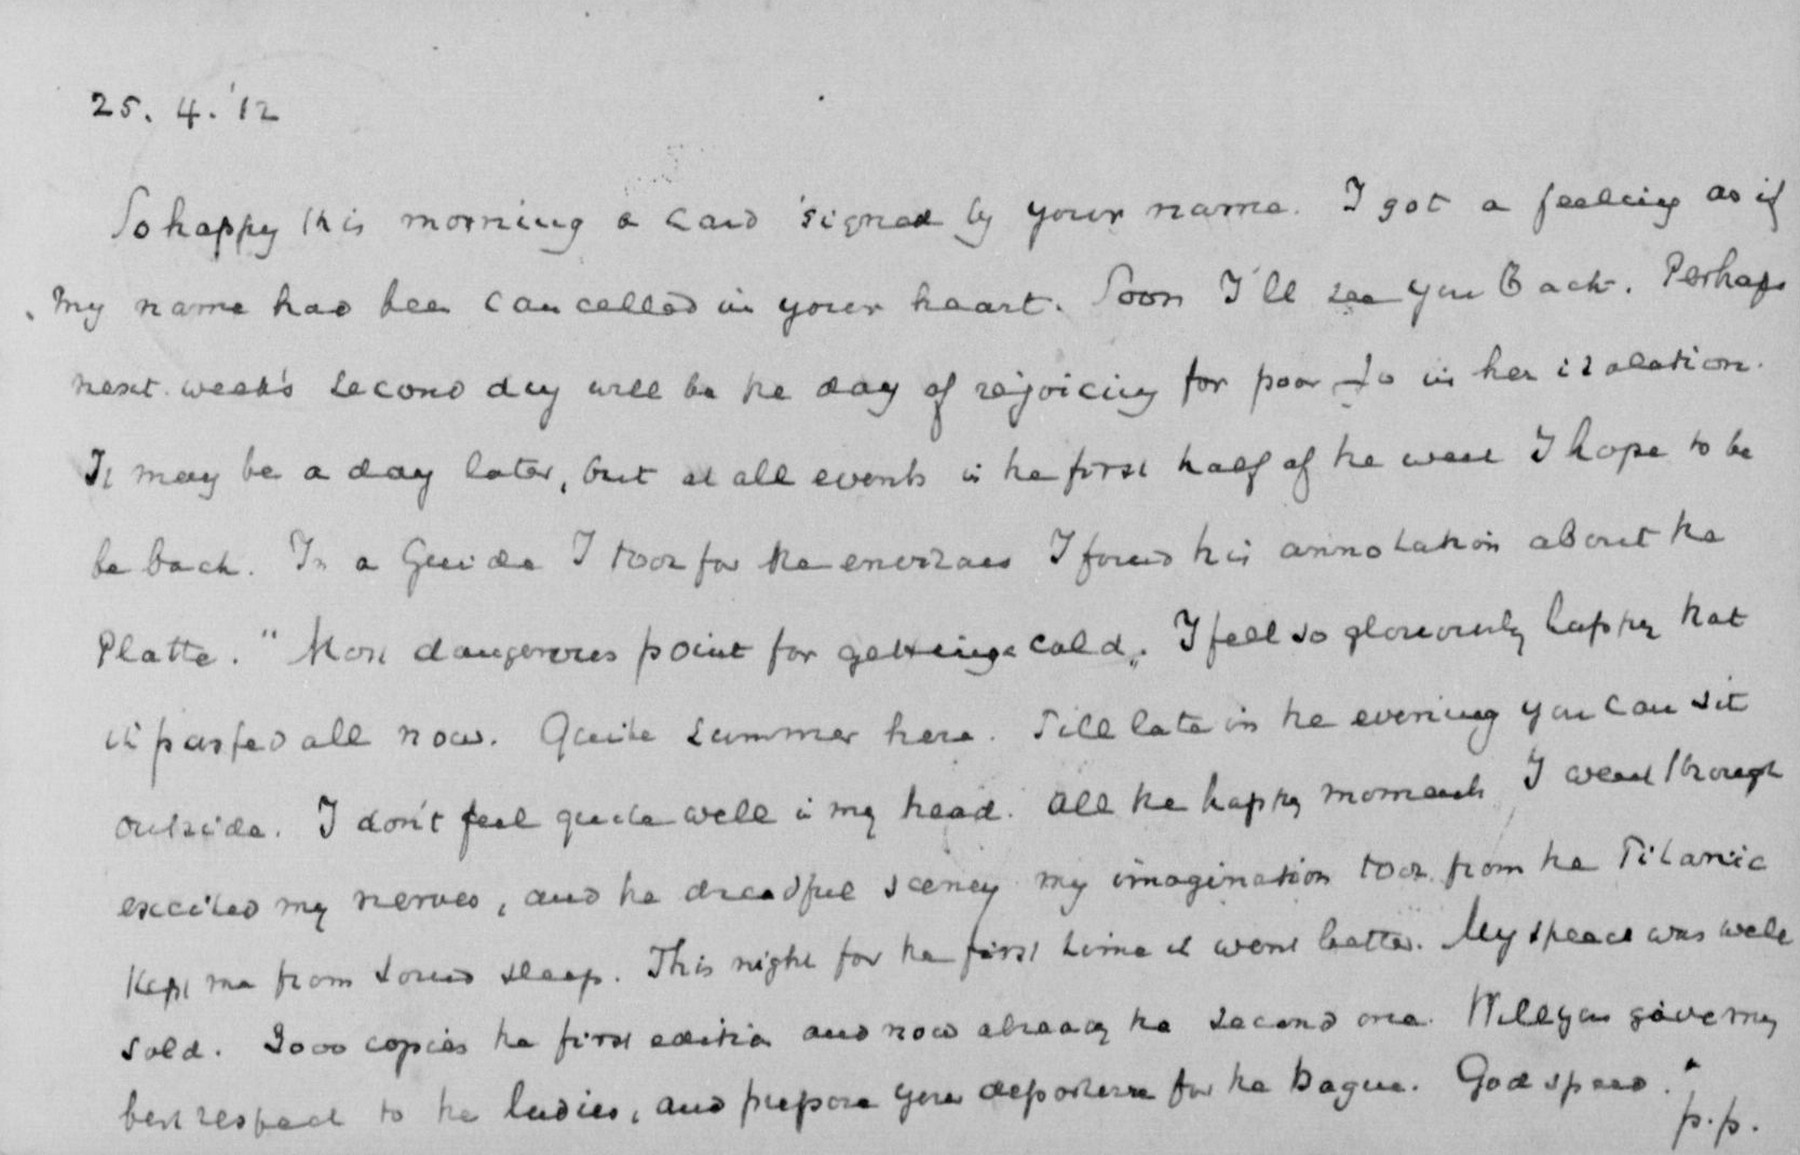 25. 4. '12
So happy this morning a card signed by your name. I got a feeling as if
my name had been cancelled in your heart. Soon I'll see you back. Perhaps
next week's second day will be the day of rejoicing for poor Jo in her isolation.
It may be a day later, but at all events in the first half of the week I hope to be
be back. In a Guide I took for the environs I found this annotation about the
Platte. "Most dangerous point for getting a cold„. I feel so gloriously happy that
it passed all now. Quite summer here. Till late in the evening you can sit
outside. I don't feel quite well in my head. All the happy moments I went through
excited my nerves, and the dreadful scenes my imagination took from the Titanic
kept me from sound sleep. This night for the first time it went better. My speach was well
sold. 3000 copies the first edition and now already the second one. Will you give my
best respect to the ladies, and prepare your departure for the Hague. God speed.
p.p.